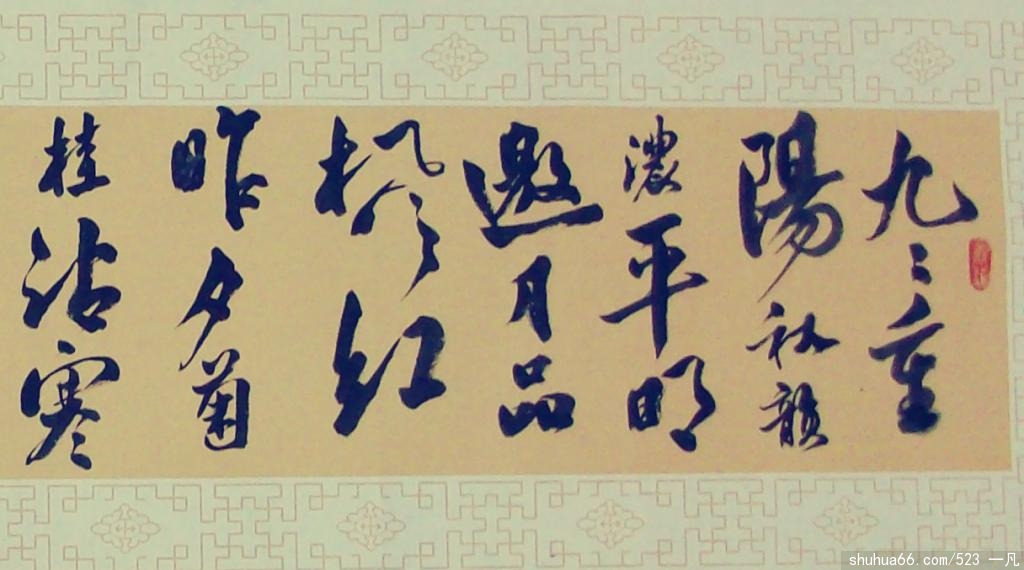 九々重
陽秋韻
濃平明
邀月品
楓紅
昨夕菊
桂沾寒
shuhua66.com/523 一凡